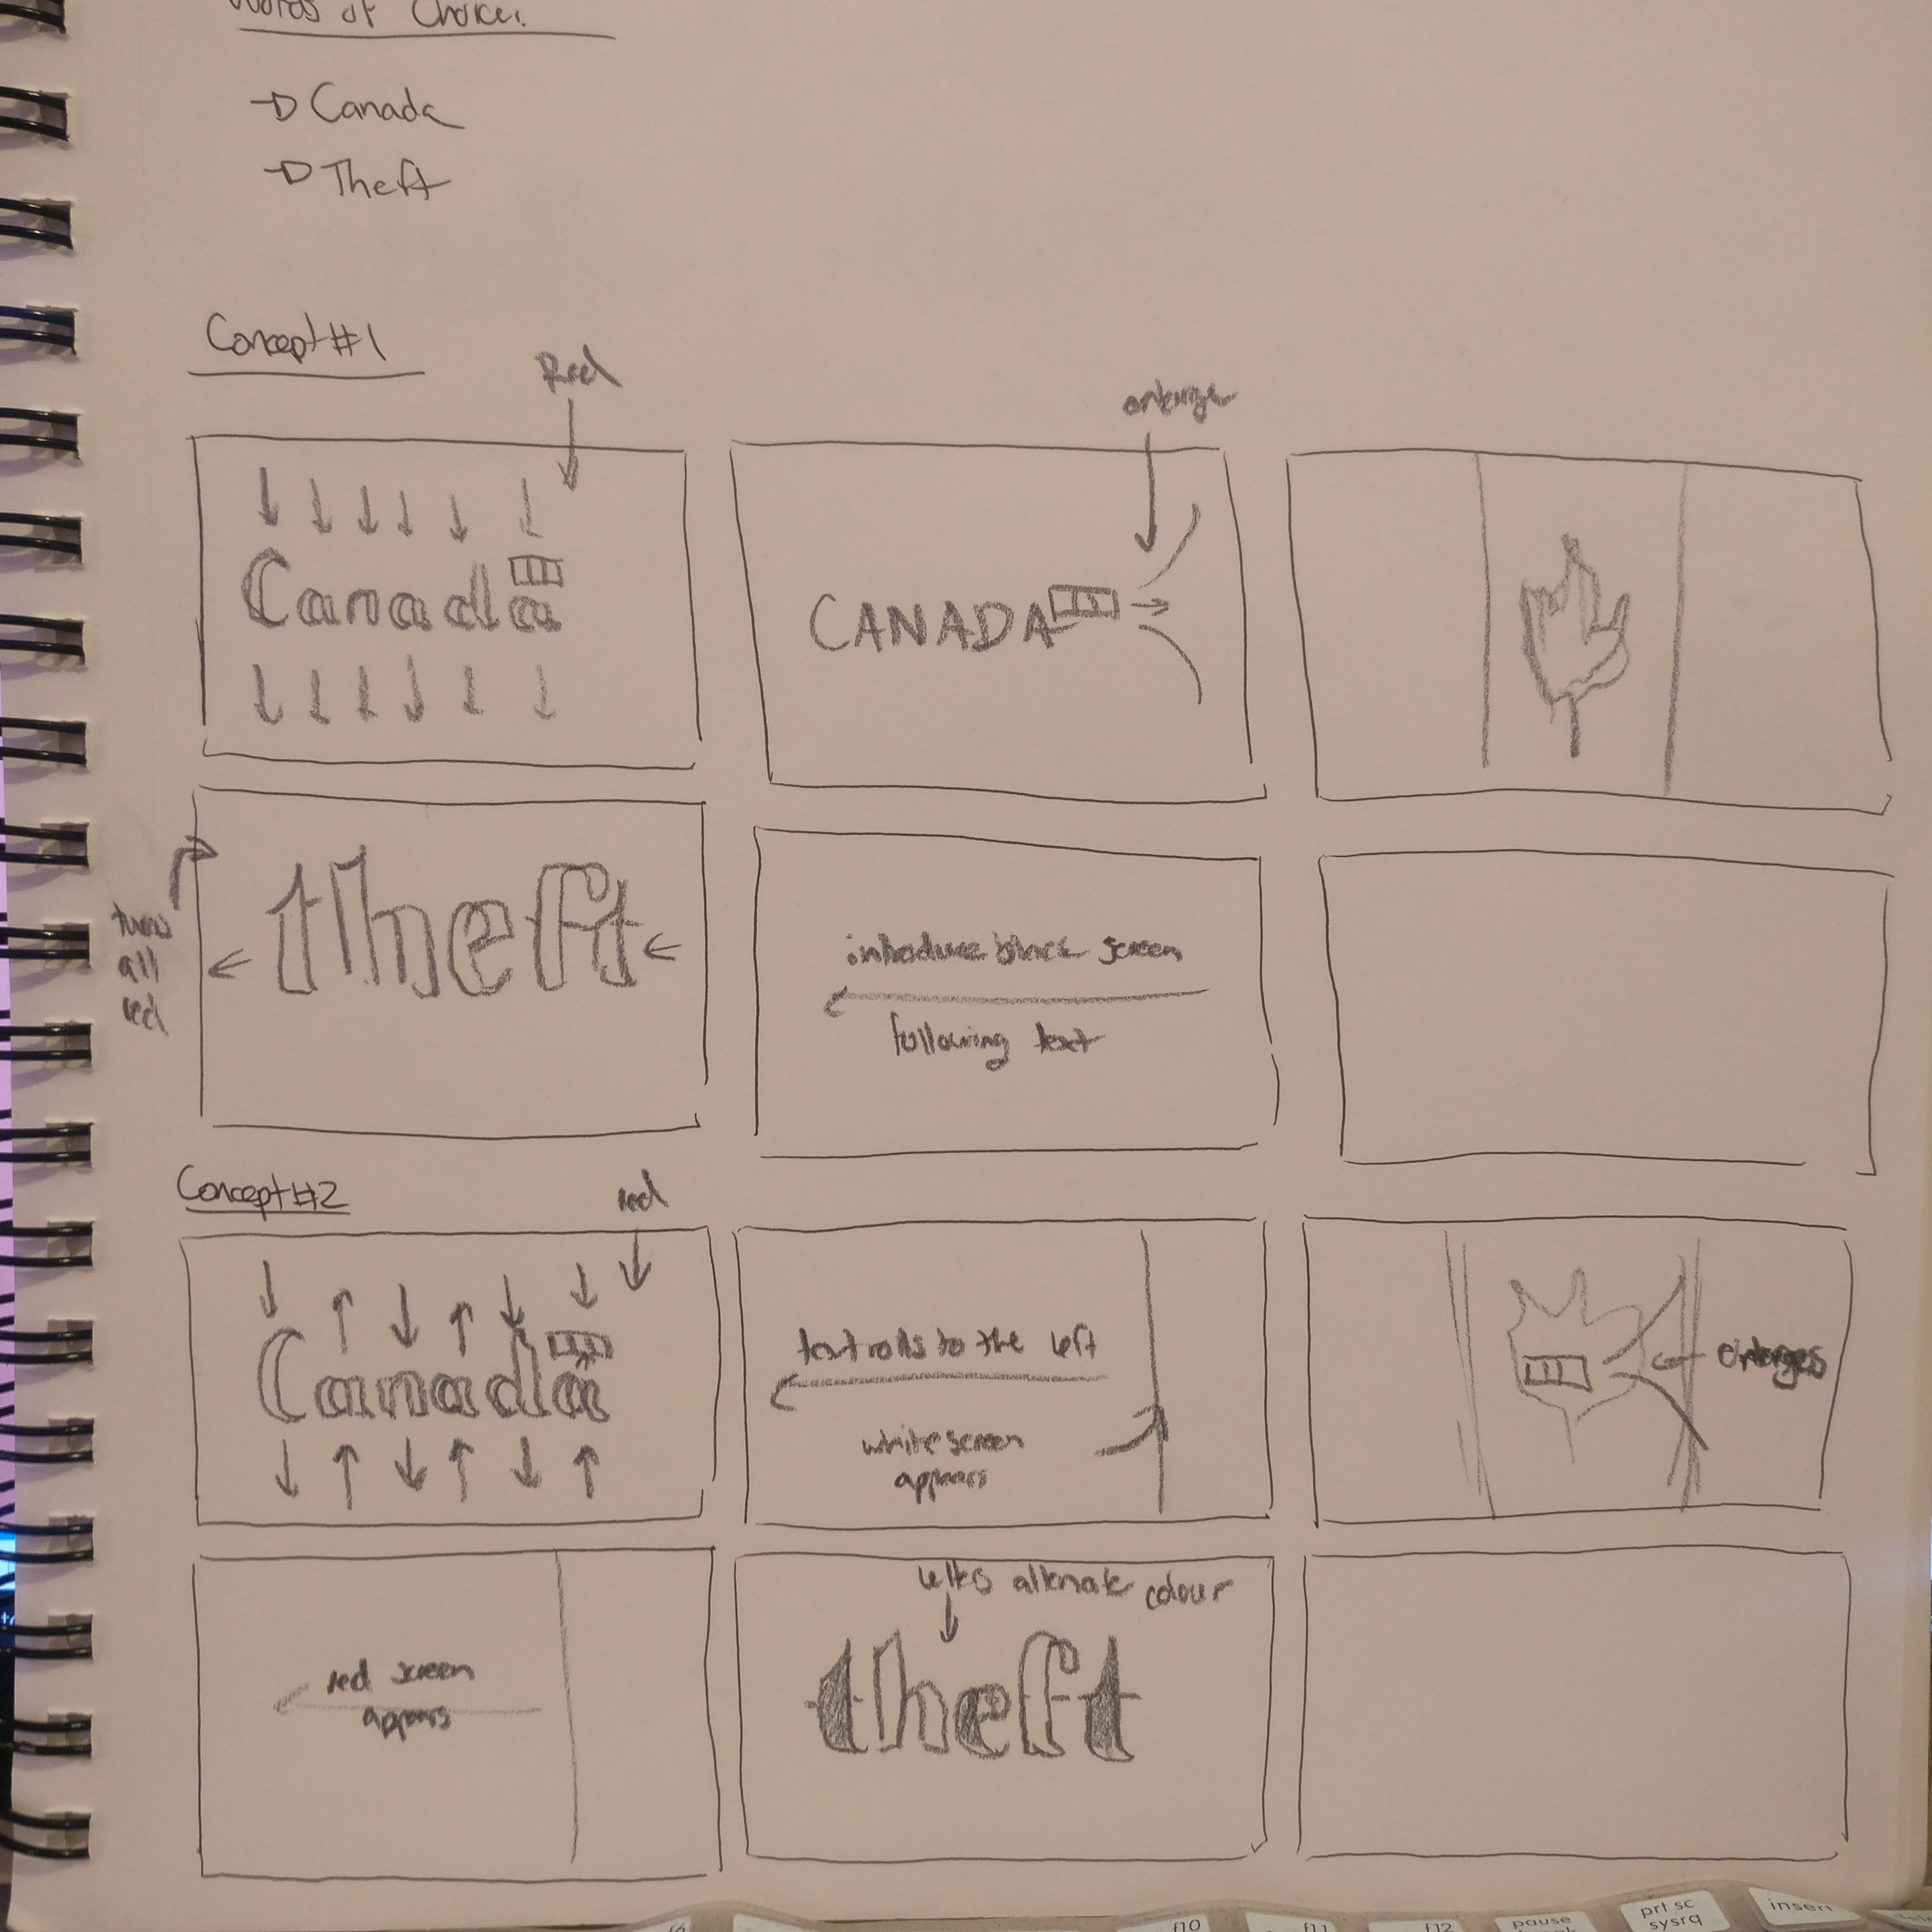 Words of Choice:
→ Canada
→ Theft
Concept #1
Red
enlarge
Canada
CANADA
turns
all
red
theft
introduce black screen
following text
Concept #2
red
Canada
text rolls to the left
white screen
appears
enlarges
red screen
appears
letters alternate colour
theft
f10
f11
f12
pause
prt sc
sysrq
insert